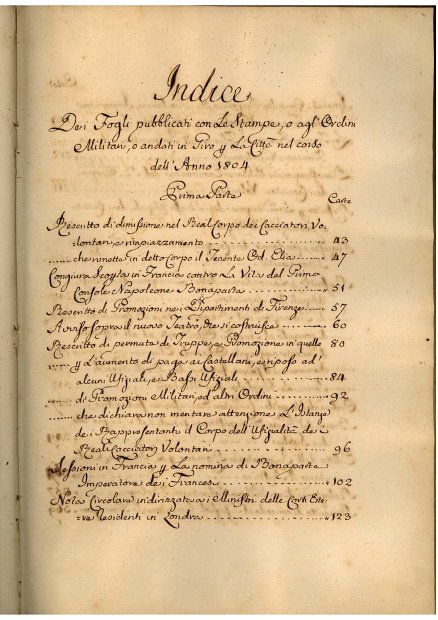 Indice
De i Fogli pubblicati con Le Stampe, o agl' Ordini
Militari, o andati in Giro p La Città nel corso
dell' Anno 1804
Prima Parte
Carte
Rescritto di dimissione nel Real Corpo dei Cacciatori Vo-
lontari, e rimpiazzamento 43
che rimette in detto corpo il Tenente Od. Elia 47
Congiura scoperta in Francia contro La Vita del Primo
Console Napoleone Bonaparte 51
Rescritto di Promozioni nei Dipartimenti di Firenze 57
Avviso sopra il nuovo Teatro, che si costruisce 60
Rescritto di permuta di Truppe, e Promozione in quelle 80
p L'aumento di paga ai Castellani, e riposo ad
alcuni Ufiziali, e Bassi Ufiziali 84
di Promozioni Militari, ed altri Ordini 92
che dichiara non meritare attenzione L'Istanze
dei Rappresentanti il Corpo dell' Ufizialità dei
Reali Cacciatori Volontari 96
Sessioni in Francia p La nomina di Bonaparte
Imperatore dei Francesi 102
Nota Circolare indirizzata ai Ministri delle Corti Este-
re Residenti in Londra 123